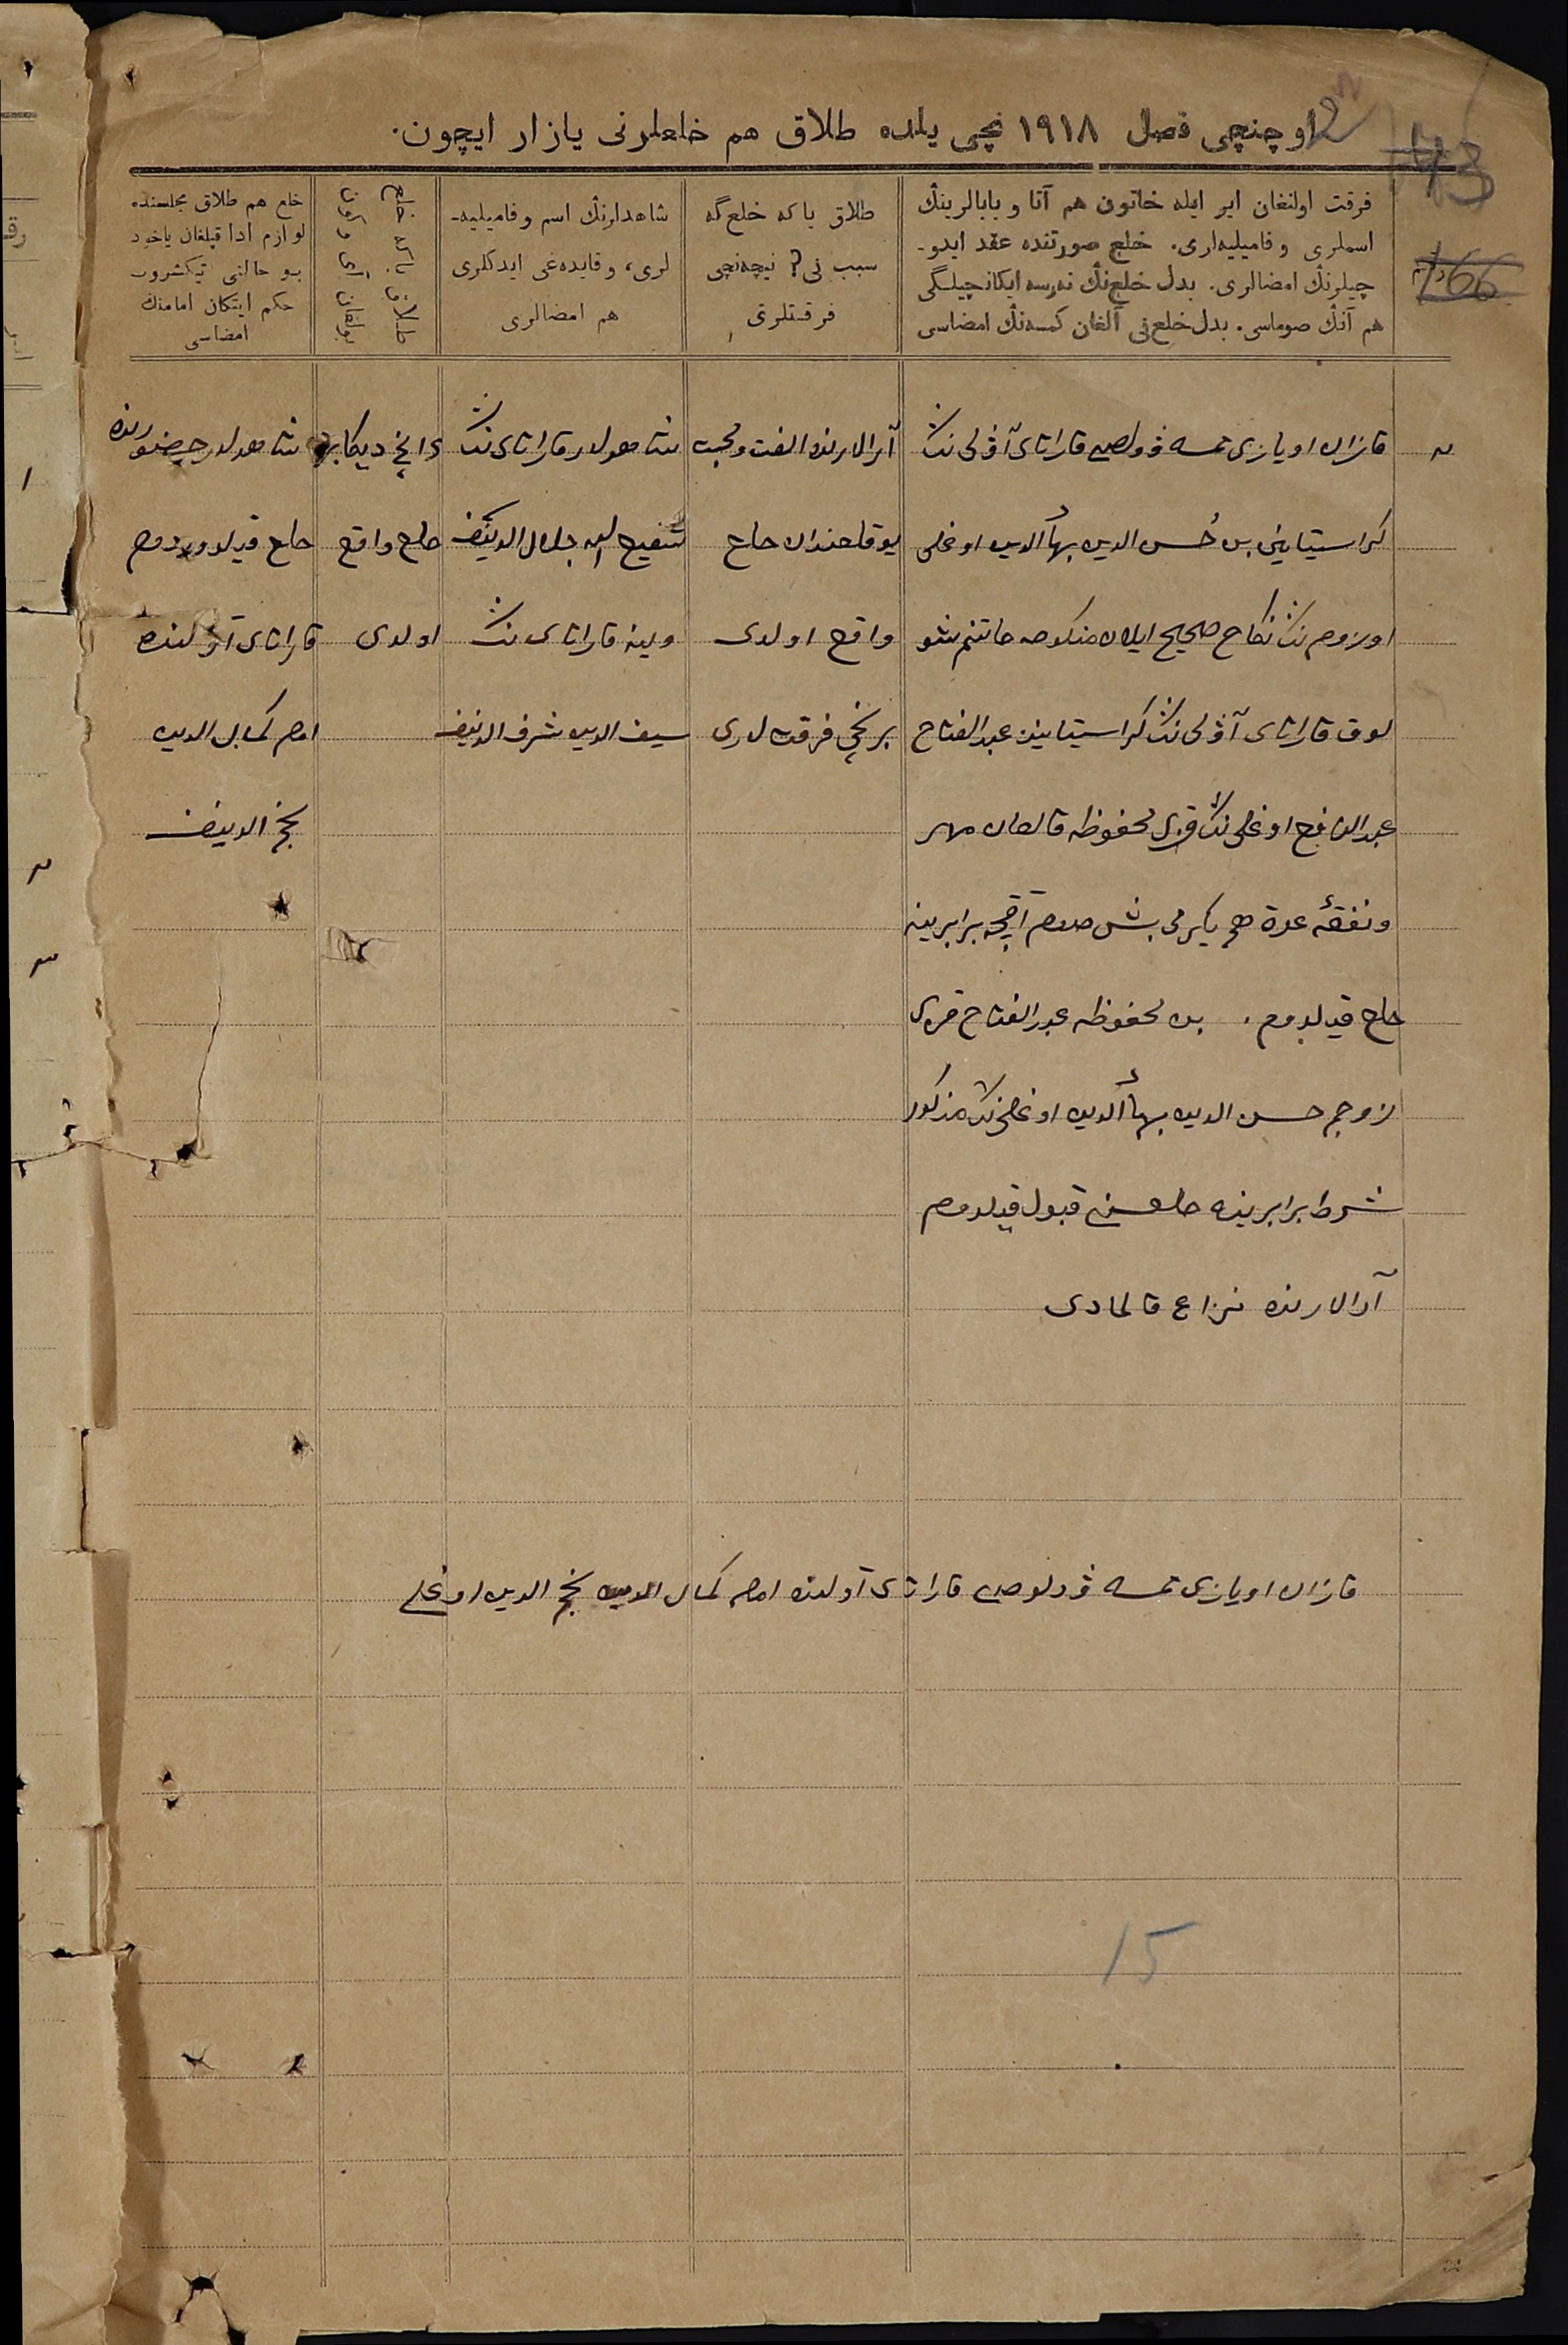 اوچنچی فصل ۱۹۱۸ نچی یلده طلاق هم خلعلرنی یازار ایچون.
73
166
فرقت اولنغان ایر ایله خاتون هم آتا و بابالرینڭ
اسملری و فامیلیەلری. خلع صورتنده عقد ایدو-
چیلرنڭ امضالری. بدل خلع‌نڭ نەرسه ایکانچیلگی
هم آنڭ صوماسی. بدل خلع‌نی آلغان کمسه‌نڭ امضاسی
طلاق یا که خلع گه
سبب نی؟ نیچه‌نچی
فرقتلری
شاهدلرنڭ اسم و فامیلیە-
لری، و قایده‌غی ایدکلری
هم امضالری
طلاق یا که خلع
بولغان آی و کون
خلع هم طلاق مجلسنده
لوازم ادا قیلغان یاخود
بو حالنی تیکشروب
حکم ایتکان امامنڭ
امضاسی
۲
قازان اویازی تمسه ڤولصی قاراتای آولی‌نڭ
کراستیاینی بن حُسن الدین بهأ الدین اوغلی
اوزوم‌نڭ نکاح صحیح ایلان منکوحه خاتنم شو
لوق قاراتای آولی‌نڭ کراستیاینن عبد الفتاح
عبد النافع اوغلی‌نڭ قزی محفوظه قالغان مهر
ونفقهٔ عدة هم یکرمی بش صوم آقچه برابرینه
خلع قیلدوم. بن محفوظه عبد الفتاح قزی
زوجم حسن الدین بهأ الدین اوغلی‌نڭ مذکور
شرط برابرینه خلعنی قبول قیلدوم
آرالارنده نزاع قالمادی
آرالارنده الفت ومحبت
یوقلغندان خلع
واقع اولدی
برنچی فرقت لری
شاهدلر قاراتای‌نڭ
شفیع الله جلال الدینف
وینه قاراتای‌نڭ
سیف الدین شرف الدینف
دیکابر
خلع واقع
اولدی
شاهدلر حضورنده
خلع قیلدوردوم
قاراتای آولنده
امام کمال الدین
نجم الدینف
قازان اویازی تمسه ڤولوصی قاراتای آولنده امام کمال الدین نجم الدین اوغلی
15